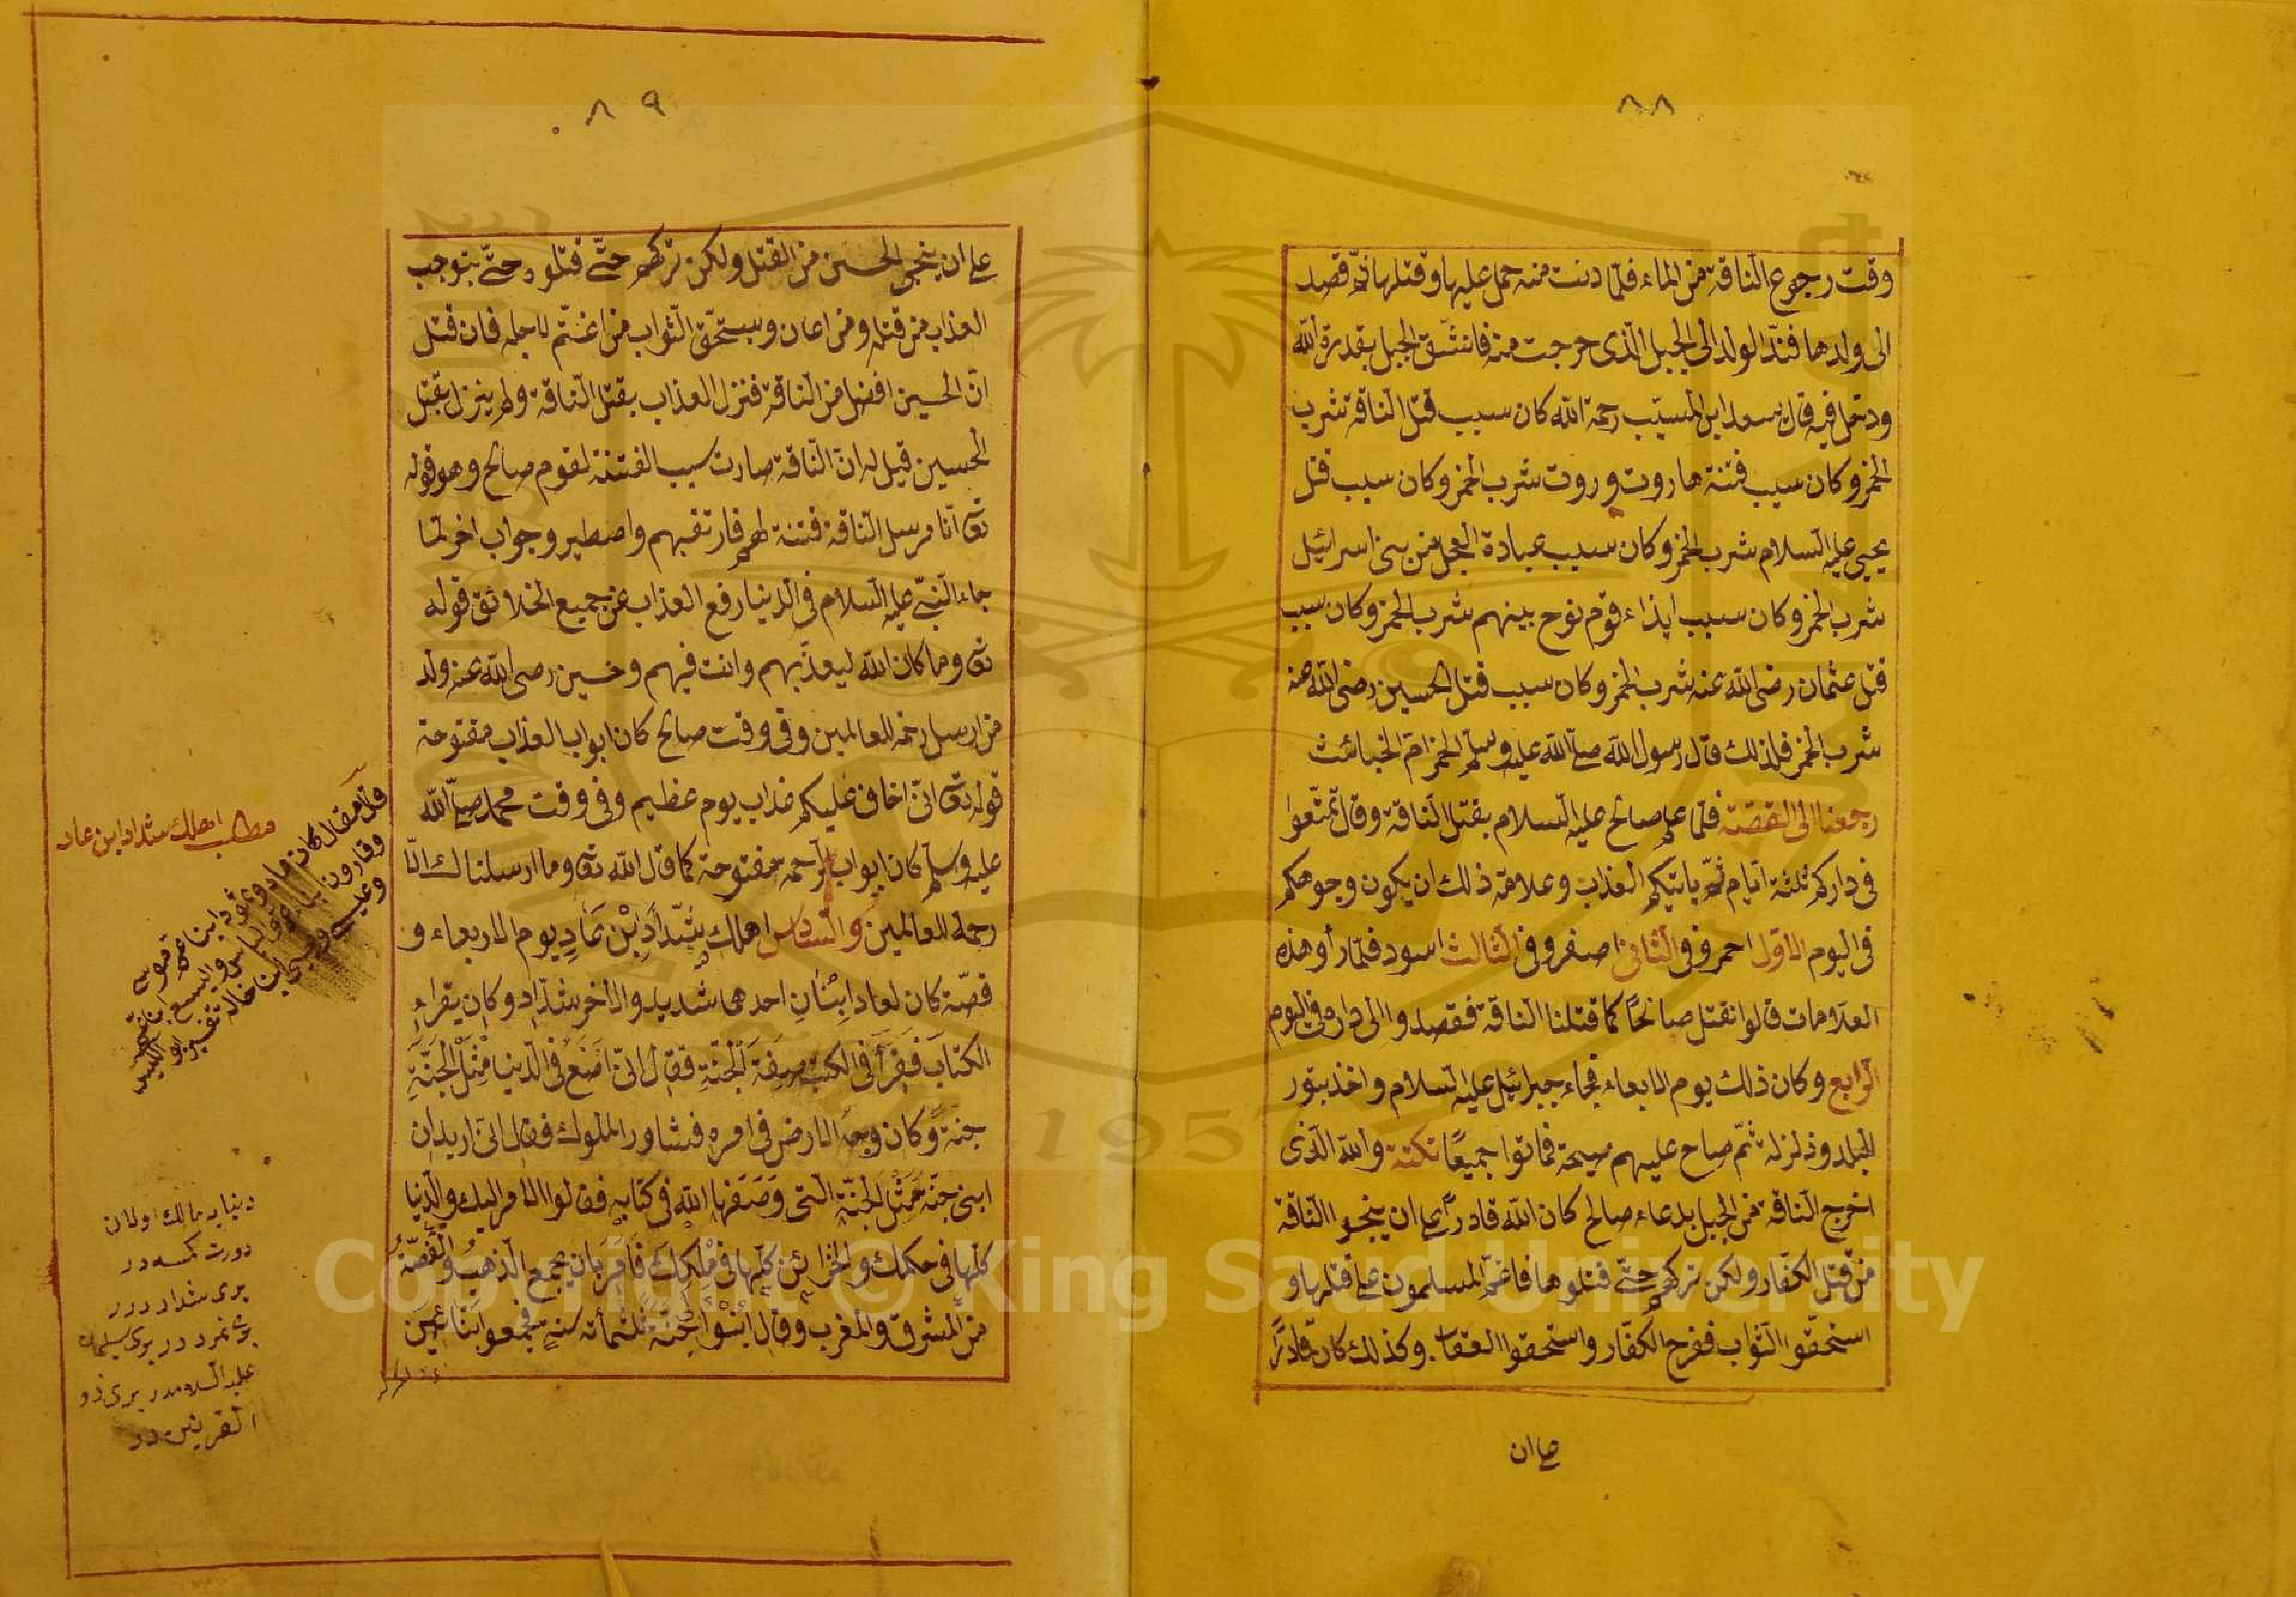 ٨٨
وقت رجوع النّاقة من الماء فلمّا دنت منه حمل عليها وقتلها ثمّ قصد
الى ولدها فندّ الولد الى الجبل الّذى خرجت منه فانشّق الجبل بقدرة الله
ودخل فيه قال سعد ابن المسيّب رحمة الله كان سبب قتل النّاقة شرب
الخمر وكان سبب فتنة هاروت وروت شرب الخمر وكان سبب قتل
يحيى عليه السلام شرب الخمر وكان سبب عبادة العجل من بنى اسرائيل
شرب الخمر وكان سبب ايذاء قوم نوح بينهم شرب الخمر وكان سبب
قتل عثمان رضى الله عنه شرب الخمر وكان سبب قتل الحسين رضى الله عنه
شرب الخمر فلذلك قال رسول الله صلى الله عليه وسلم الخمر امّ الخبائث
رجعنا الى القصّة فلمّا علم صالح عليه السلام بقتل النّاقة وقال تمتّعوا
فى داركم ثلثة ايّام ثمّ ياتيكم العذاب وعلامة ذلك ان يكون وجوهكم
فى اليوم الاوّل احمر وفى الثّانى اصفر وفى الثالث اسود فلمّا رأو هذه
العلامات قالوا نقتل صالحًا كما قتلنا النّاقة فقصدوا الى داره فى اليوم
الرّابع وكان ذلك يوم الابعاء فجاء جبرائيل عليه السلام واخذ بتور
البلد وذلزله ثمّ صاح عليهم صيحة فماتوا جميعًا نكتة والله الّذى
اخرج النّاقة من الجبل بدعاء صالح كان الله قادرًا على ان ينجوا النّاقة
من قتل الكفّار ولكن تركهم حتّى قتلوها فاغتمّ المسلمون على قتلها و
استحقّوا الثّواب ففرح الكفّار واستحقوا العقاب وكذلك كان قادرًا
على ان
٨٩
على ان ينجى الحسين من القتل ولكن تركهم حتّى قتلوه حتّى يتوجب
العذاب من قتله ومن اعان ويستحّق الثّواب من اغتّم لاجله فان قتل
انّ الحسين افضل من النّاقة فنزل العذاب بقتل النّاقة ولم ينزل بقتل
الحسين قيل له انّ النّاقة صارت سبب الفتنة لقوم صالح وهو قوله
تعالى انّا مرسل النّاقة فتنة لهم فارتقبهم واصطبر وجواب اخر لمّا
جاء النّبى عليه السلام فى الدّنيا رفع العذاب عن جميع الخلائق قوله
تعالى وما كان الله ليعذّبهم وانت فيهم وحسين رضى الله عنه ولد
من ارسل رحمة للعالمين وفى وقت صالح كان ابواب العذاب مفتوحة
قوله تعالى انّى اخاف عليكم عذاب يوم عظيم وفى وقت محمد صلى الله
عليه وسلم كان ابواب الرّحمه مفتوحة كما قال الله تعالى وما ارسلناك الّا
رحمة للعالمين والسّادس اهلك شدّاد ابن عاد يوم الاربعاء و
قصّة كان لعاد ابنان احدهما شديد والاخر شدّاد وكان يقراء
الكتاب فقرأ فى الكتب صفة الجنّة فقال انّى اصنع فى الدّنيا مثل الجنّة
جنة وكان وجه الارض فى امره فشاور الملوك فقال انّى اريد ان
ابنى جنّة مثل الجنّة التى وصفها الله فى كتابه فقالوا الامر اليك والدّنيا
كلّها فى حكمك والخزائن كلّها فى ملكك فامر بان يجمع الذّهب والفضّة
من المشرق والمغرب وقال ابنوا جنّة ثلثمأته سنة فجمعوا بنّاعين
مطلب اهلك شداد ابن عاد
دنيايه مالك اولان
دورت كمسه در
برى شداد در
برى نمرود در برى سليمان
عليه السلامدر برى ذو
القرنين در